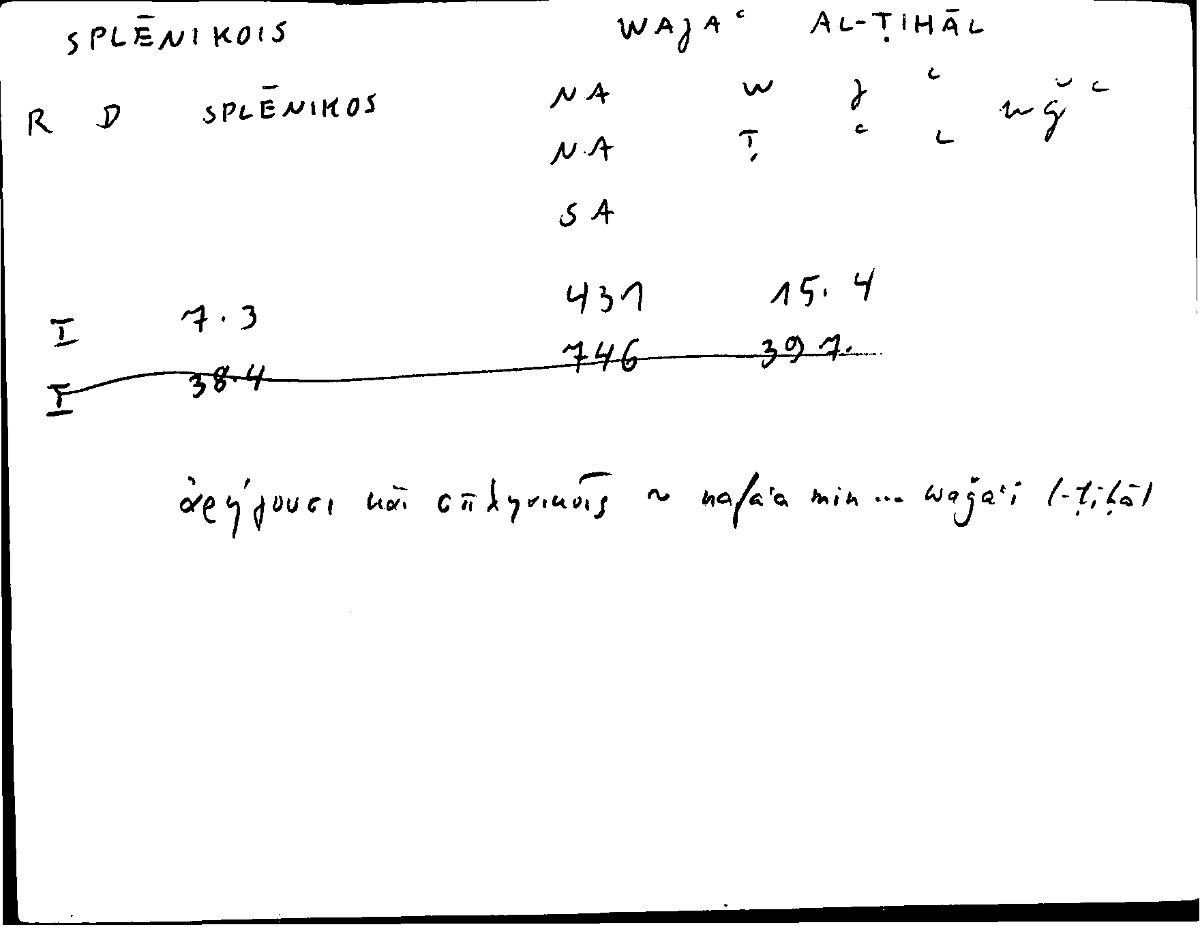 SPLĒNIKOIS WAJAʿ AL-ṬIHĀL
R D SPLĒNIKOS NA W J ʿ wǧʿ
NA Ṭ ʿ L
SA
I 7.3 431 15.4
I 38.4 746 397.
ἀρήγουσι καὶ σπληνικοῖς ~ nafaʿa min ... waǧaʿi l-ṭiḥāl